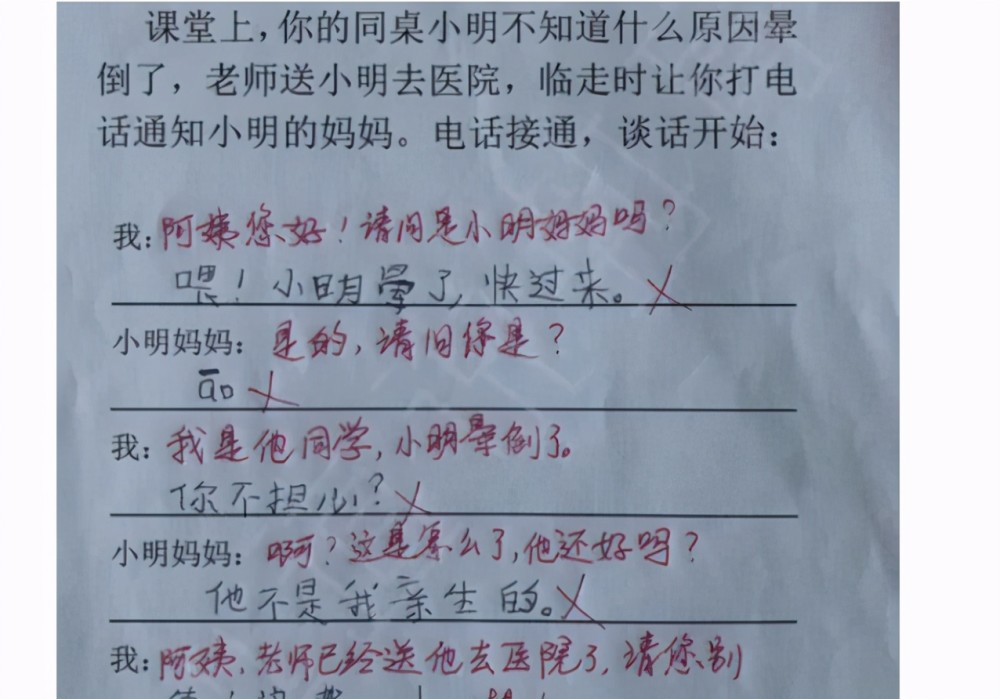 课堂上，你的同桌小明不知道什么原因晕
倒了，老师送小明去医院，临走时让你打电
话通知小明的妈妈。电话接通，谈话开始：
我：阿姨您好！请问是小明妈妈吗？
喂！小明晕了，快过来。
小明妈妈：是的，请问你是？
āo
我：我是他同学，小明晕倒了。
你不担心？
小明妈妈：啊？这是怎么了，他还好吗？
他不是我亲生的。
我：阿姨，老师已经送他去医院了，请您别